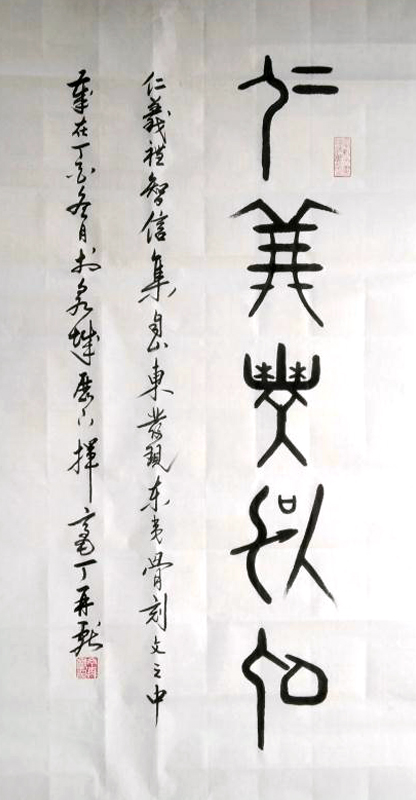 仁義禮智信
仁義禮智信集自山東發現东夷骨刻文之中
歲在丁酉冬月於泉城歷下揮毫丁再献